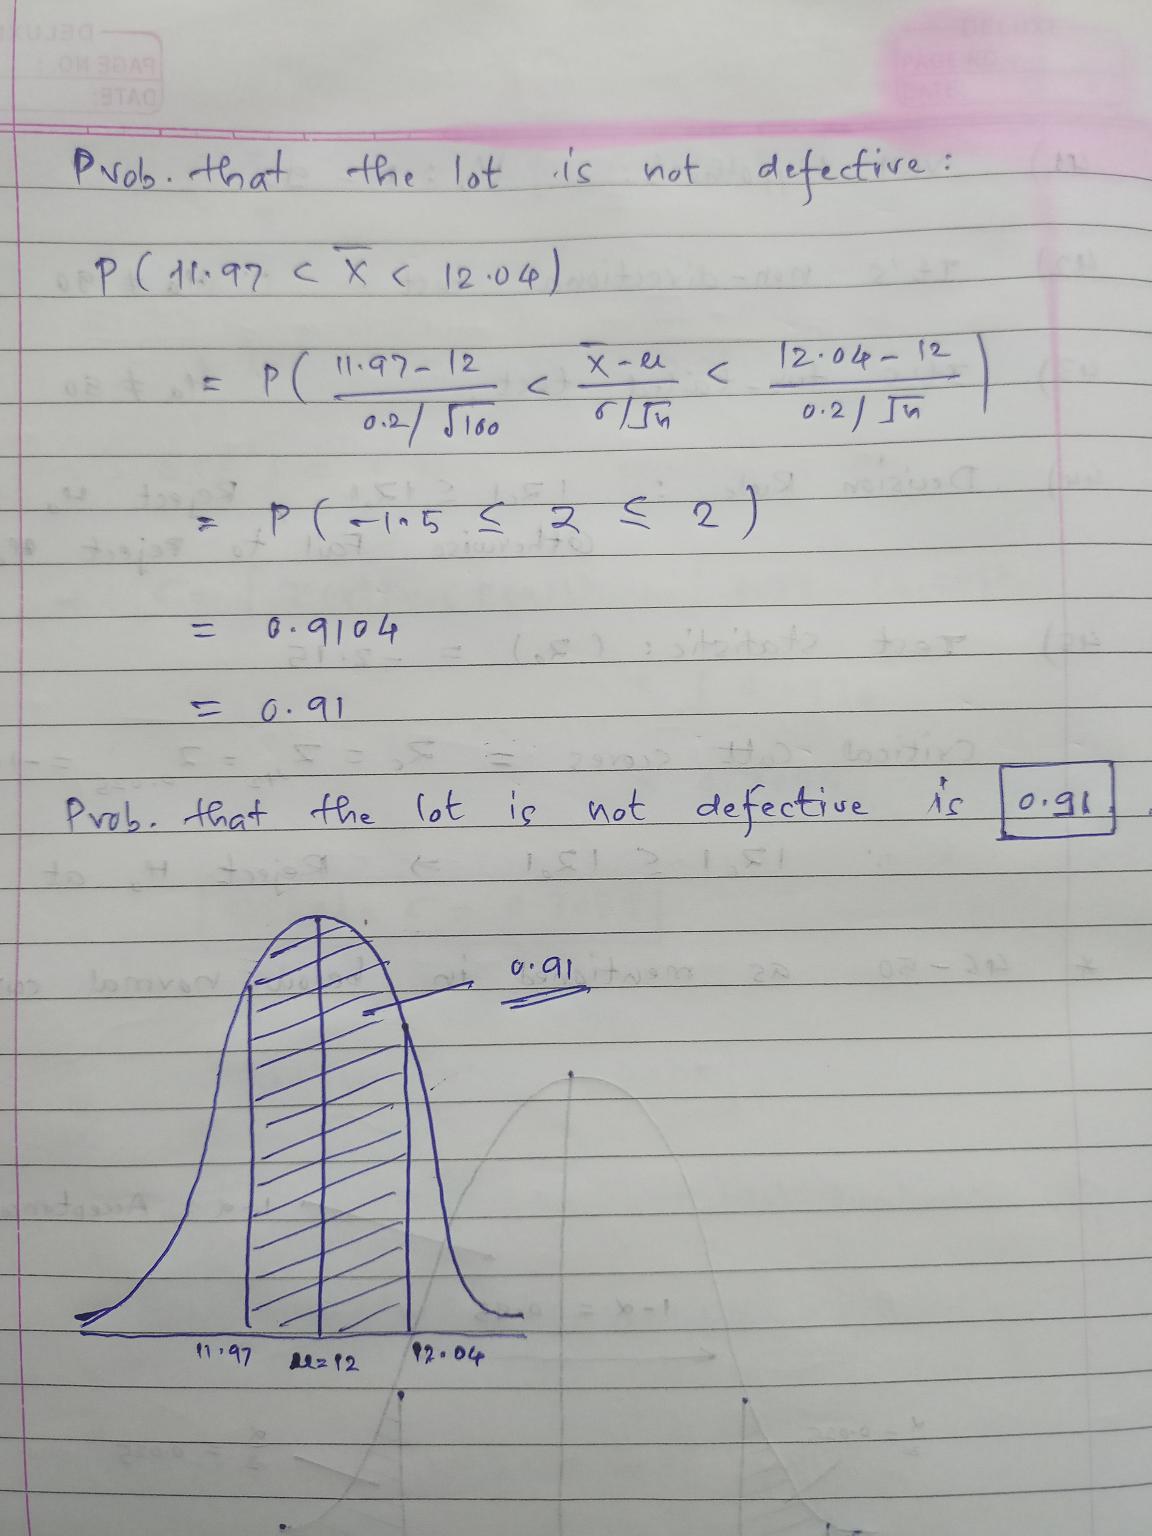 Prob. that the lot is not defective:
P(11.97 < x̄ < 12.04)
= P( (11.97-12)/(0.2/√100) < (x̄-μ)/(σ/√n) < (12.04-12)/(0.2/√n) )
= P(-1.5 ≤ z ≤ 2)
= 0.9104
= 0.91
Prob. that the lot is not defective is 0.91
0.91
11.97 μ=12 12.04